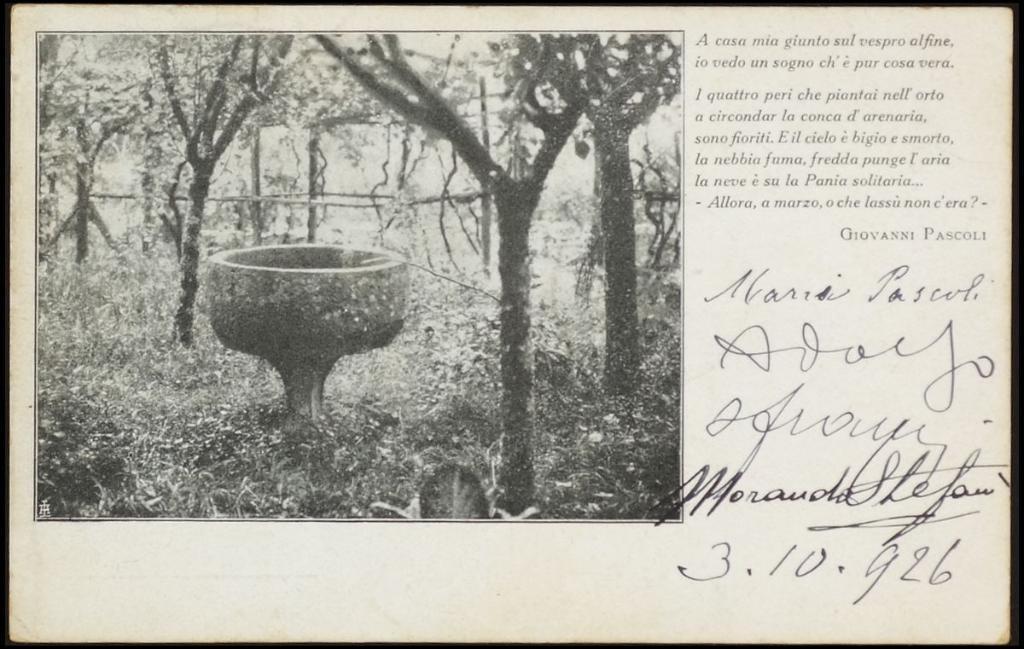 A casa mia giunto sul vespro alfine,
io vedo un sogno ch' è pur cosa vera.
I quattro peri che piantai nell' orto
a circondar la conca d' arenaria,
sono fioriti. E il cielo è bigio e smorto,
la nebbia fuma, fredda punge l' aria
la neve è su la Pania solitaria...
- Allora, a marzo, o che lassù non c'era? -
GIOVANNI PASCOLI
Maria Pascoli
Adolfo
Stefani
3.10.926